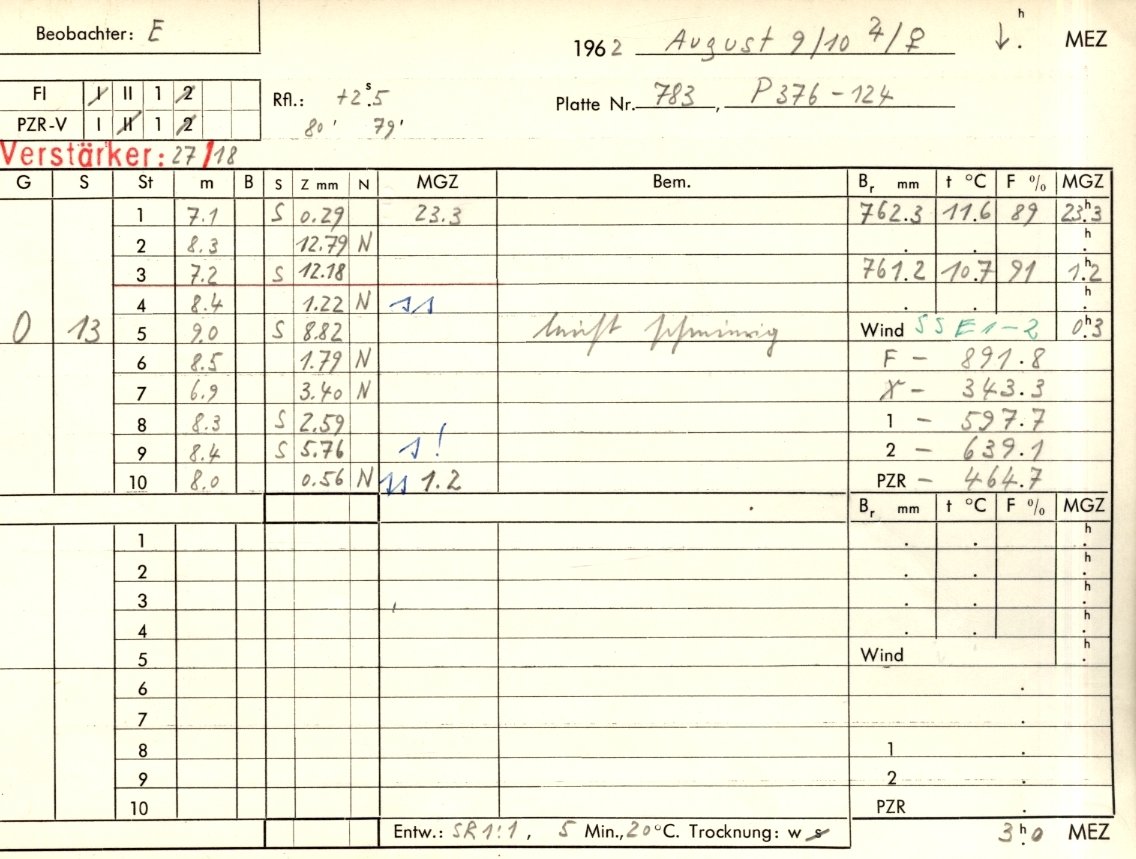 Beobachter: E
1962 August 9/10 ♃/♀ ↓. h MEZ
FI I II 1 2
PZR-V I II 1 2
Rfl.: +2ˢ.5
80' 79'
Platte Nr. 783, P376-124
Verstärker: 27/18
G S St m B S Z mm N MGZ Bem. Bᵣ mm t °C F % MGZ
1 7.1 S 0.29 23.3 762.3 11.6 89 23ʰ.3
2 8.3 12.79 N . . ʰ.
3 7.2 S 12.18 761.2 10.7 91 1ʰ.2
4 8.4 1.22 N ss . . ʰ.
0 13 5 9.0 S 8.82 Wind SSE 1-2 0ʰ.3
6 8.5 1.79 N F - 891.8
7 6.9 3.40 N X - 343.3
8 8.3 S 2.59 1 - 597.7
9 8.4 S 5.76 s! 2 - 639.1
10 8.0 0.56 N ss 1.2 PZR - 464.7
Bᵣ mm t °C F % MGZ
1 . . ʰ.
2 . . ʰ.
3 . . ʰ.
4 . . ʰ.
5 Wind ʰ.
6 .
7 .
8 1 .
9 2 .
10 PZR .
Entw.: SR1:1, 5 Min., 20°C. Trocknung: w s 3ʰ.0 MEZ